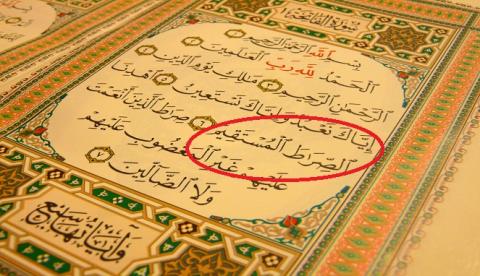 سُورَةُ الْفَاتِحَةِ
بِسْمِ ٱللَّهِ ٱلرَّحْمَٰنِ ٱلرَّحِيمِ ١
ٱلْحَمْدُ لِلَّهِ رَبِّ ٱلْعَٰلَمِينَ ٢
ٱلرَّحْمَٰنِ ٱلرَّحِيمِ ٣ مَٰلِكِ يَوْمِ ٱلدِّينِ ٤
إِيَّاكَ نَعْبُدُ وَإِيَّاكَ نَسْتَعِينُ ٥ ٱهْدِنَا
ٱلصِّرَٰطَ ٱلْمُسْتَقِيمَ ٦ صِرَٰطَ ٱلَّذِينَ أَنْعَمْتَ
عَلَيْهِمْ غَيْرِ ٱلْمَغْضُوبِ عَلَيْهِمْ
وَلَا ٱلضَّآلِّينَ ٧
وَآيَاتُهَا سَبْعٌ